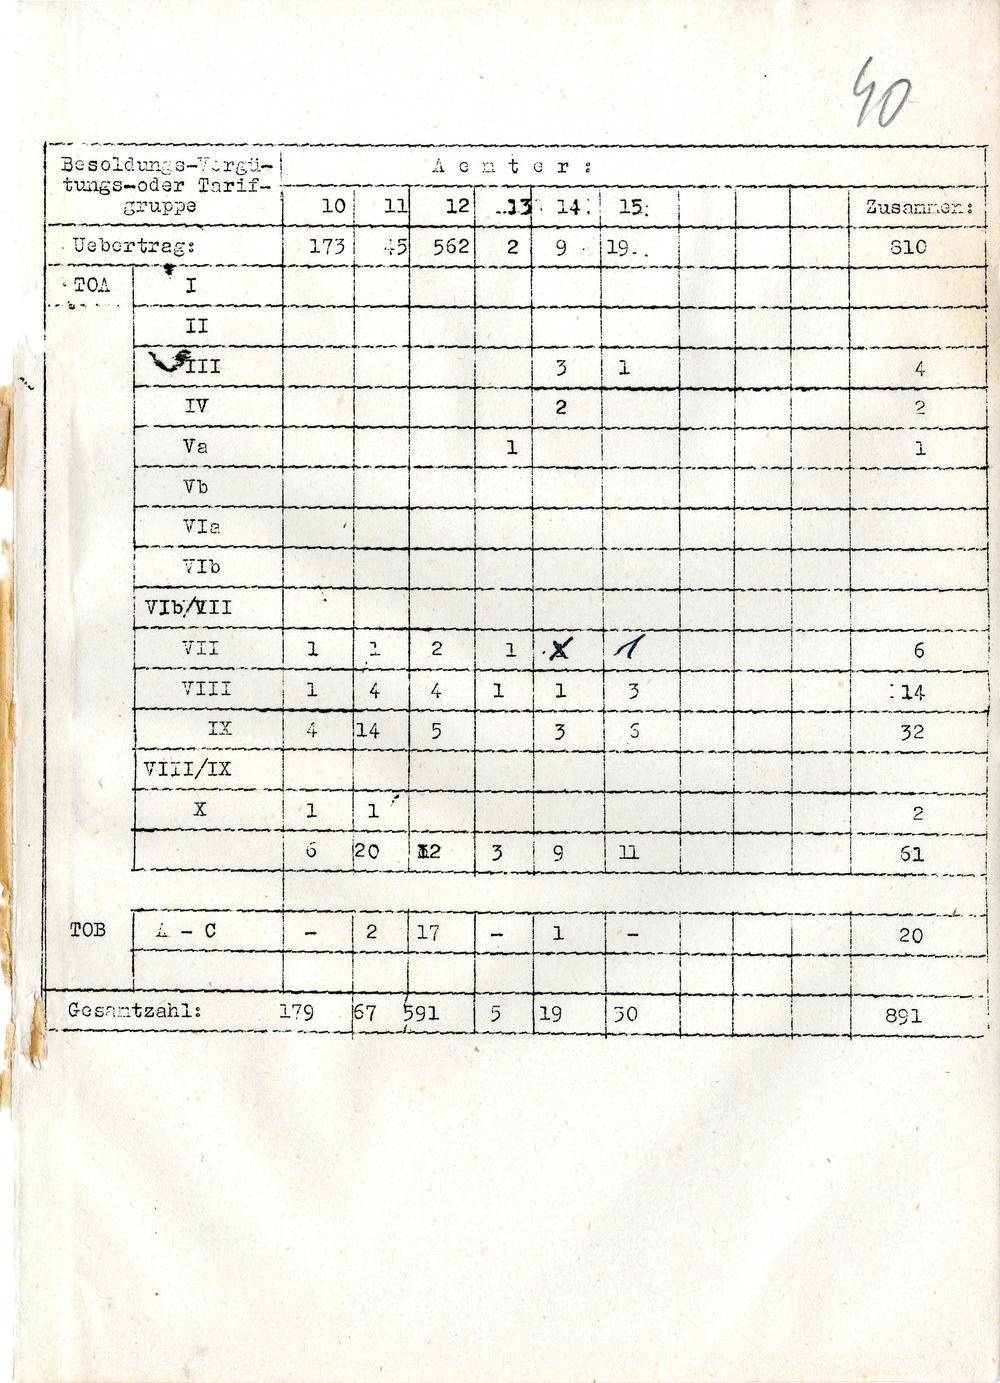 40
Besoldungs-Vergü- Aemter:
tungs-oder Tarif-
gruppe 10 11 12 13 14. 15. Zusammen:
Uebertrag: 173 45 562 2 9 19. 810
TOA I
II
III 3 1 4
IV 2 2
Va 1 1
Vb
VIa
VIb
VIb/VII
VII 1 1 2 1 1 6
VIII 1 4 4 1 1 3 14
IX 4 14 5 3 6 32
VIII/IX
X 1 1 2
6 20 12 3 9 11 61
TOB A - C - 2 17 - 1 - 20
Gesamtzahl: 179 67 591 5 19 30 891